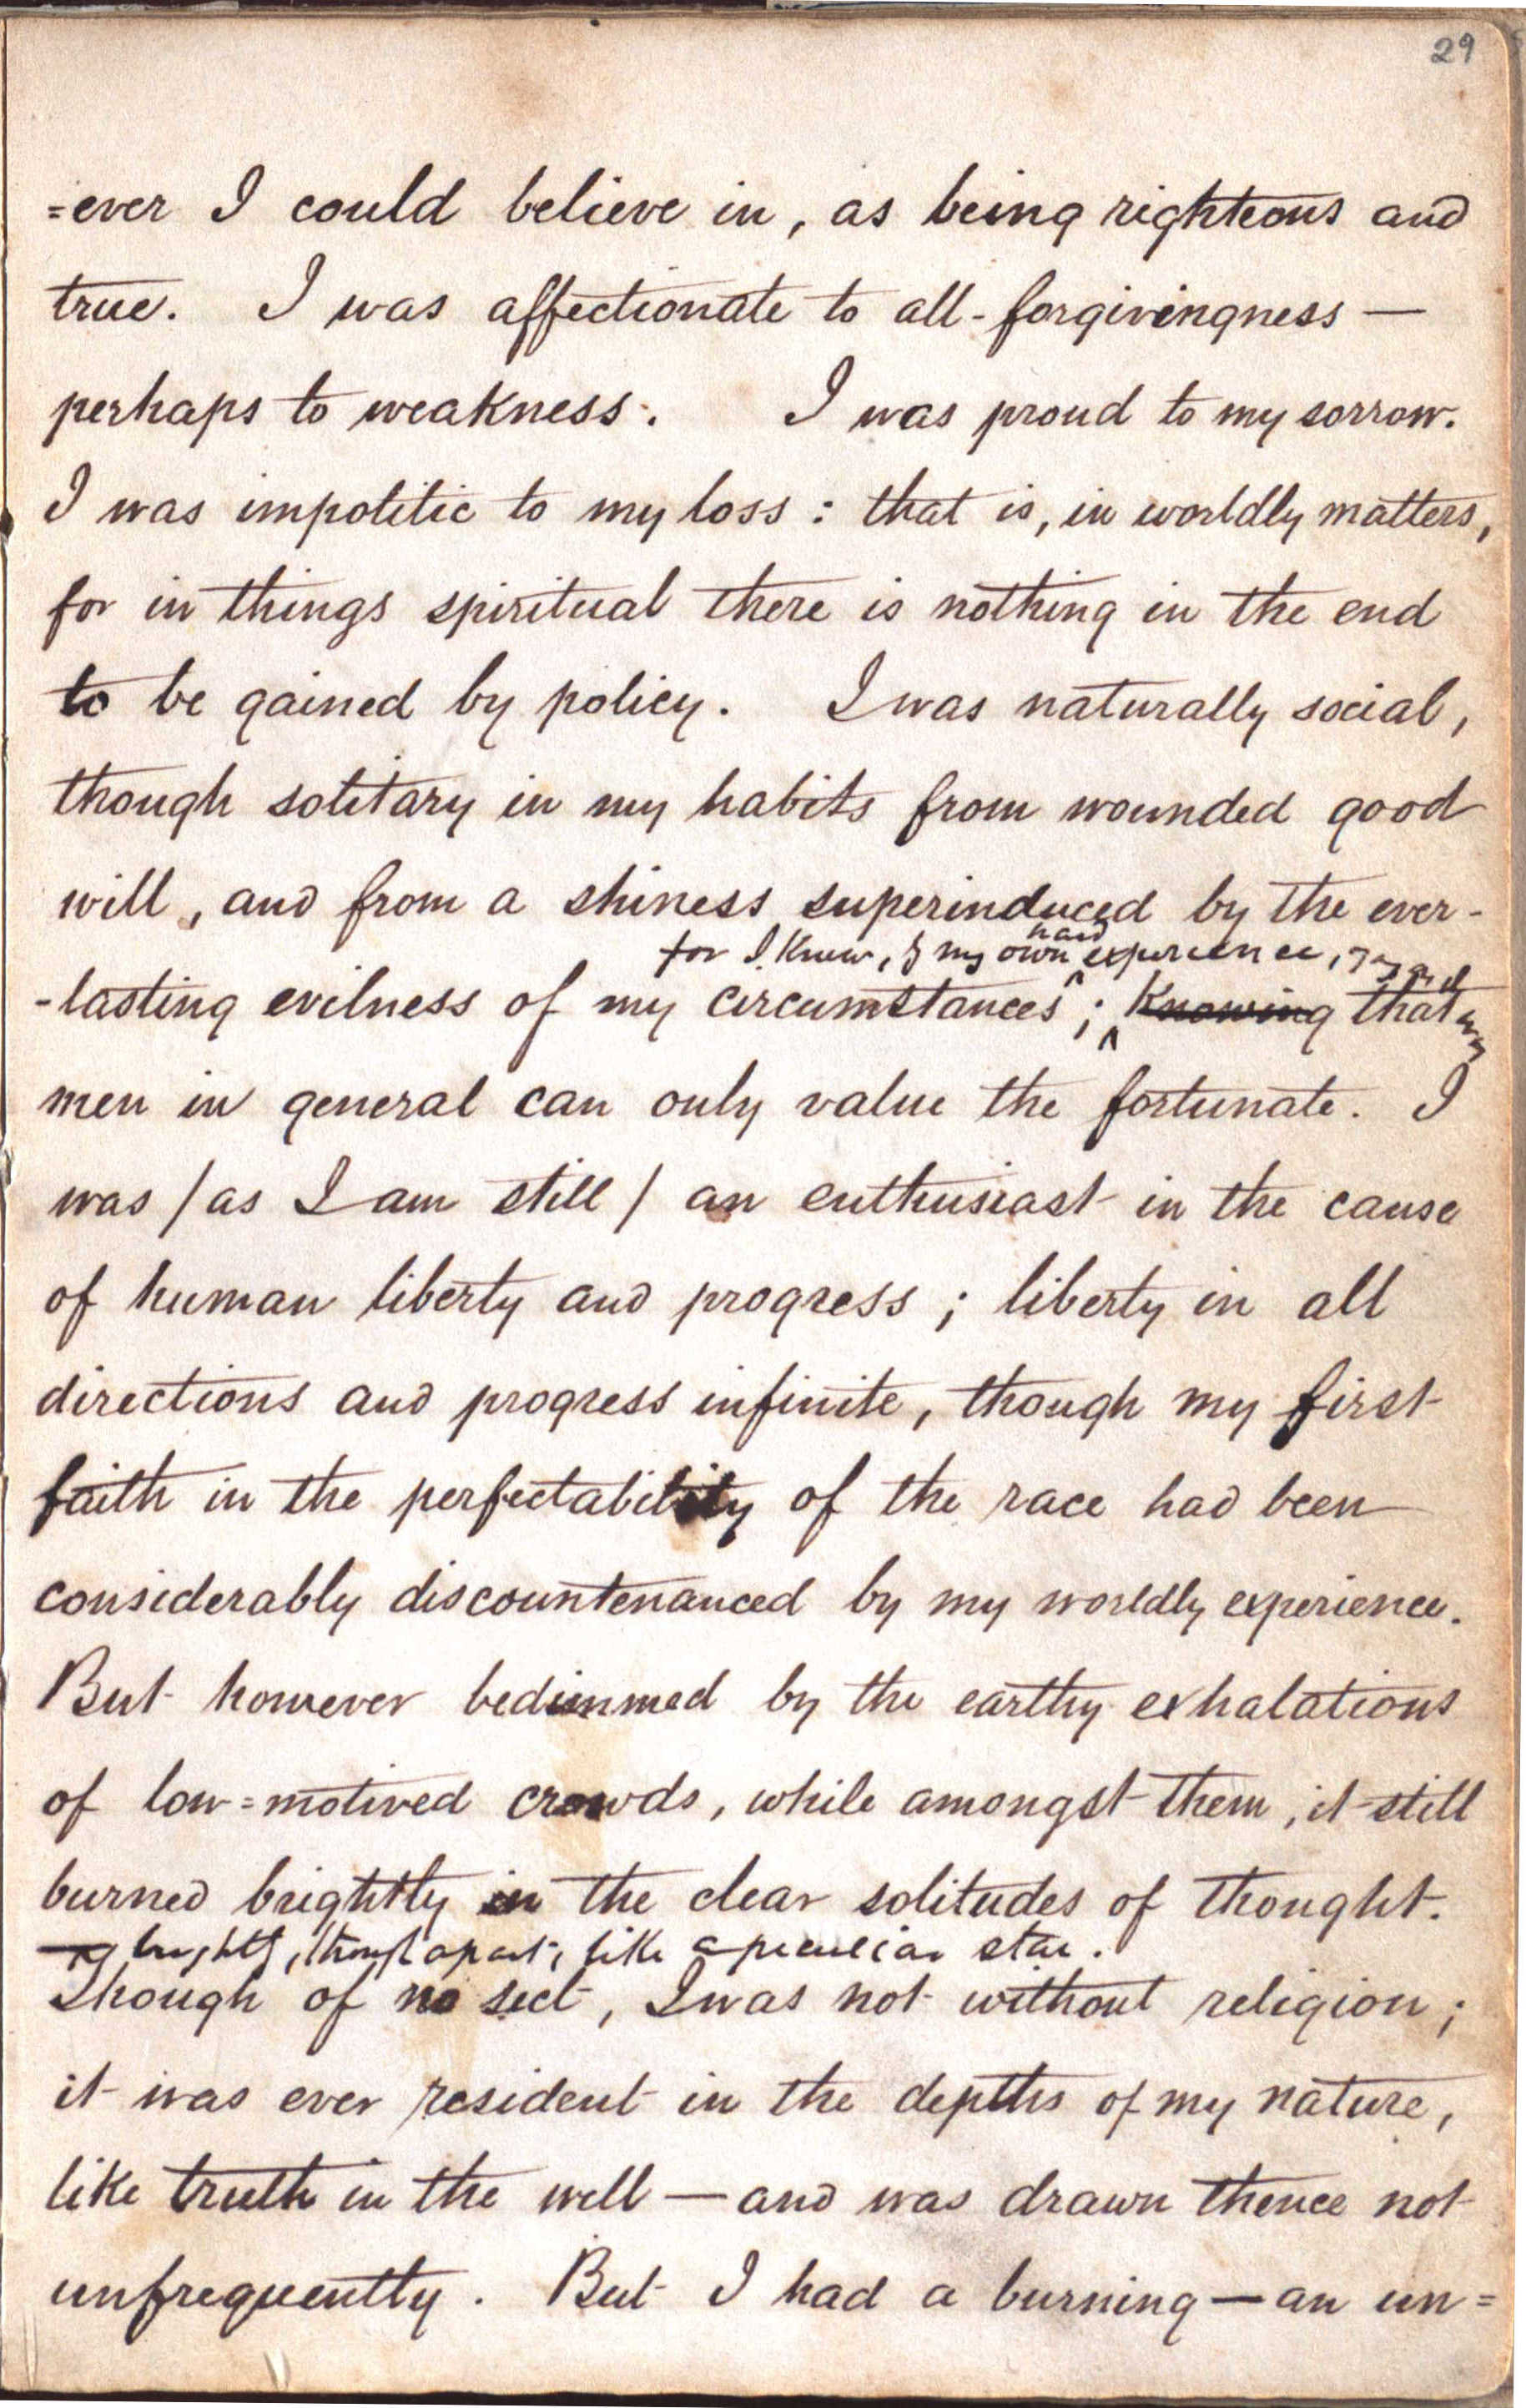 29
=ever I could believe in, as being righteous and
true. I was affectionate to all-forgivingness —
perhaps to weakness. I was proud to my sorrow.
I was impolitic to my loss : that is, in worldly matters,
for in things spiritual there is nothing in the end
to be gained by policy. I was naturally social,
though solitary in my habits from wounded good
will, and from a shiness superinduced by the ever-
hard
for I knew, of my own experience,
-lasting evilness of my circumstances ; knowing that
men in general can only value the fortunate. I
was / as I am still / an enthusiast in the cause
of human liberty and progress ; liberty in all
directions and progress infinite, though my first
faith in the perfectability of the race had been
considerably discountenanced by my worldly experience.
But however bedimmed by the earthy exhalations
of low=motived crowds, while amongst them, it still
burned brightly in the clear solitudes of thought.
brightly, though apart, like a peculiar star.
Though of no sect, I was not without religion ;
it was ever resident in the depths of my nature,
like truth in the well — and was drawn thence not
unfrequently. But I had a burning — an un=